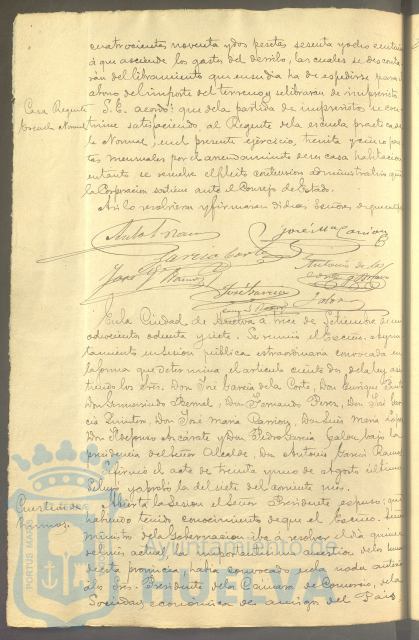 cuatrocientas noventa y dos pesetas sesenta y ocho centimos
á que asciende los gastos del derribo, las cuales se descontarán
del libramiento que en su dia ha de expedirse para
abono del importe del terreno y se librarán de imprevistos
Casa Regente
Escuela Normal
S.E. acordó: que de la partida de imprevistos se continue
satisfaciendo al Regente de la escuela practica de
la Normal, en el presente ejercicio, treinta y cinco pesetas
mensuales por el arrendamiento de su casa habitacion
en tanto se resuelve el pleito contencioso administrativo que
la Corporacion sostiene ante el Consejo de Estado.
Asi lo resolvieron y firmaran dichos Señores de que certifico
José Mª
García Cortés
José
Antonio de la
José García
En la Ciudad de Huelva á trece de Setiembre de mil
ochocientos ochenta y siete. Se reunió el Excmo. Ayuntamiento
en sesion pública extraordinaria convocada en
la forma que determina el articulo ciento dos de la ley, asistiendo
los Sres. Don José García de la Corte, Don Enrique
Don Gumersindo Bernal, Don Fernando Perez, Don José García
Quintero, Don José María Parrion, Don Luis María Lopez
Don Ildefonso Azcárate y Don Pedro García Jalon, bajo la
presidencia del Señor Alcalde, Don Antonio García Ramos
el acta de treinta y uno de Agosto último
Se leyó y aprobó la del siete del corriente mes.
Cuestion de
humos.
Abierta la sesion el Señor Presidente expuso: que
habiendo tenido conocimiento de que el Excmo. Señor
ministro de la Gobernacion iba á resolver el dia quince
del mes actual la importante cuestion de los humos
de esta provincia, habia convocado
á los Sres. Presidente de la Cámara de Comercio, de la
Sociedad económica de amigos del Pais
PORTUS MARIS
Ayuntamiento de
HUELVA